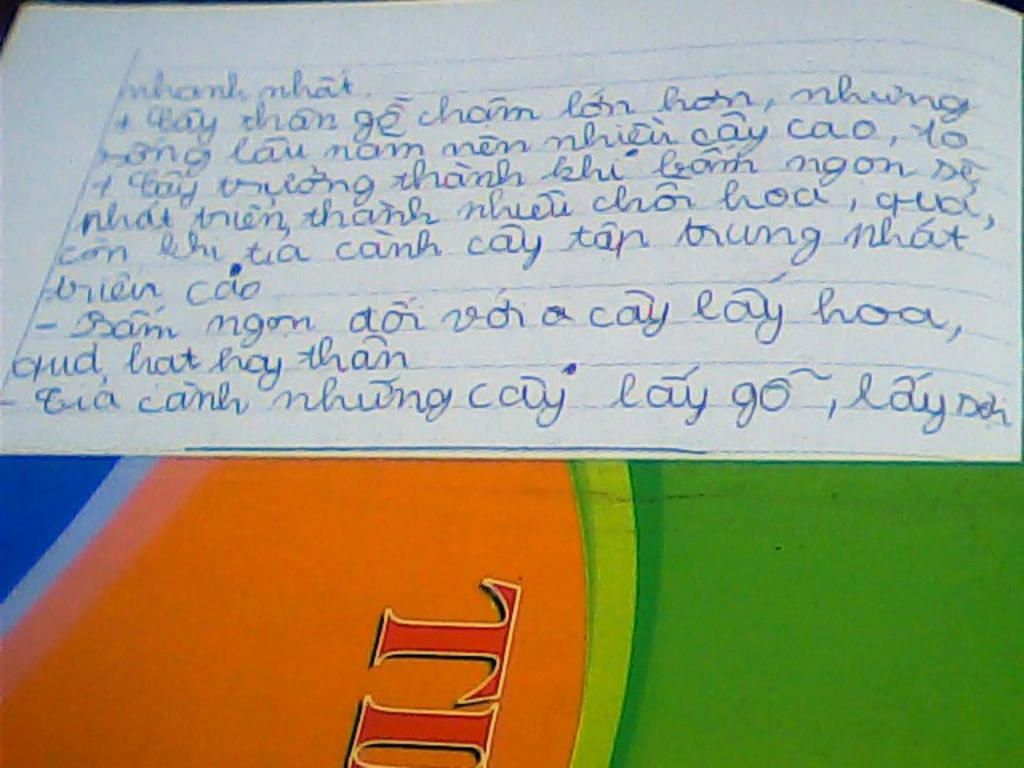 nhanh nhất.
+ Cây thân gỗ chậm lớn hơn, nhưng
sống lâu năm nên nhiều cây cao, to
+ Cây trưởng thành khi bấm ngọn sẽ
phát triển thành nhiều chồi hoa, quả,
còn khi tỉa cành cây tập trung phát
triển cao
- Bấm ngọn đối với cây lấy hoa,
quả, hạt hay thân
- Tỉa cành những cây lấy gỗ, lấy sợi